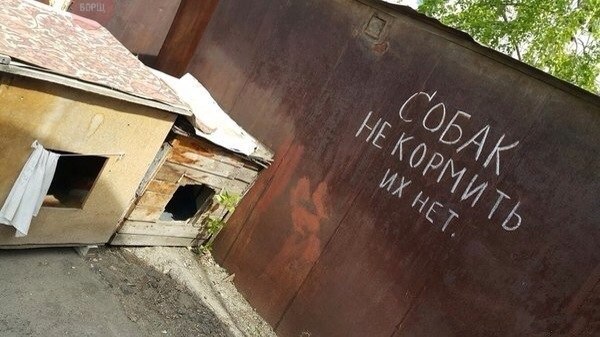 БОРЩ
СОБАК
НЕ КОРМИТЬ
ИХ НЕТ.